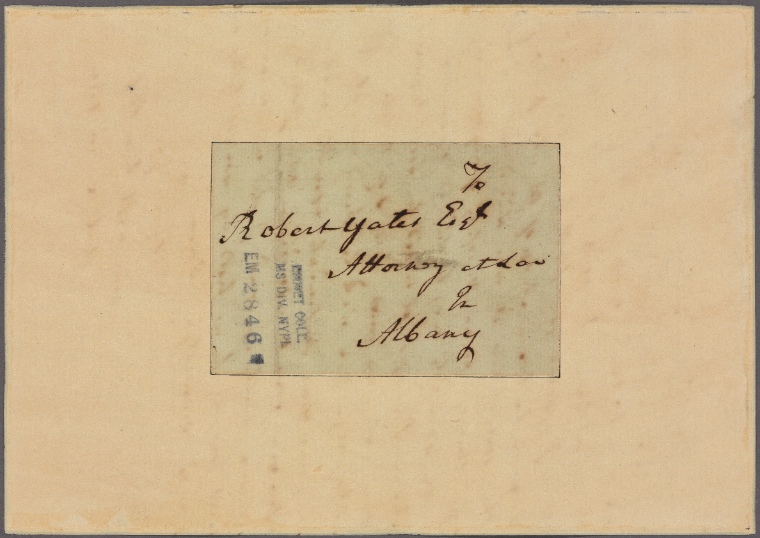 To
Robert Yates Esqr
Attorney at Law
In
Albany
EMMET COLL.
MS DIV. NYPL
EM 2846